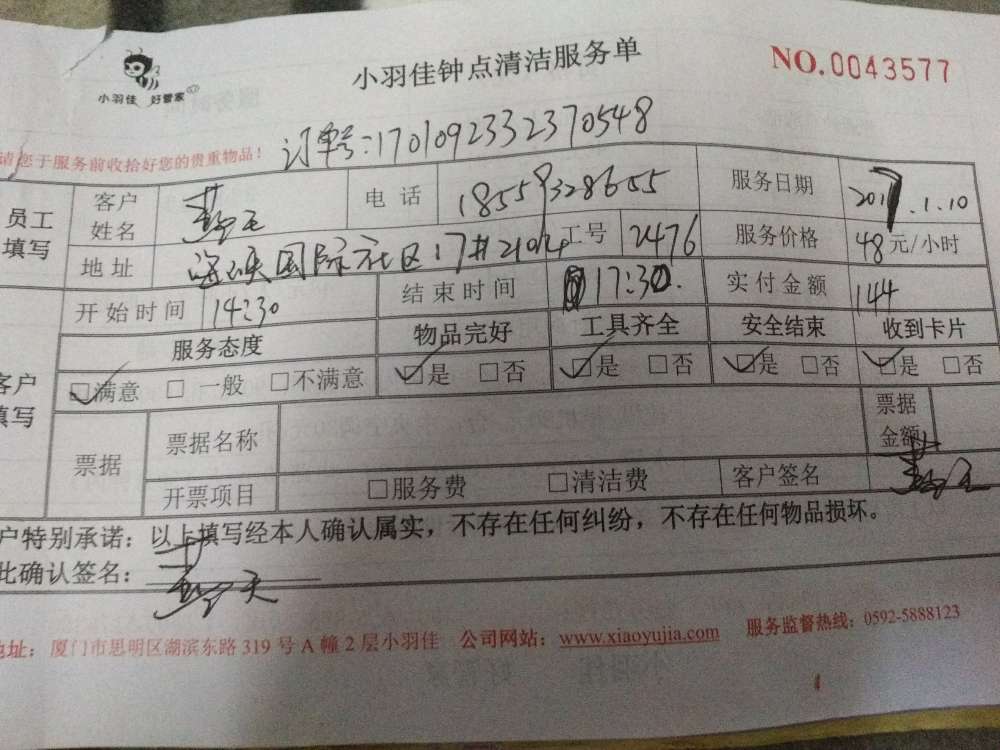 小羽佳 好管家
小羽佳钟点清洁服务单
NO.0043577
请您于服务前收拾好您的贵重物品！
订单号:1701092332370548
员工填写 客户姓名 电话 18559328655 服务日期 2017.1.10
地址 海峡国际社区17#2104 工号 2476 服务价格 48元/小时
开始时间 14:30 结束时间 17:30. 实付金额 144
客户填写 服务态度 物品完好 工具齐全 安全结束 收到卡片
☑满意 □一般 □不满意 ☑是 □否 ☑是 □否 ☑是 □否 ☑是 □否
票据 票据名称 票据金额
开票项目 □服务费 □清洁费 客户签名
户特别承诺：以上填写经本人确认属实，不存在任何纠纷，不存在任何物品损坏。
此确认签名：
地址：厦门市思明区湖滨东路319号A幢2层小羽佳 公司网站：www.xiaoyujia.com 服务监督热线：0592-5888123